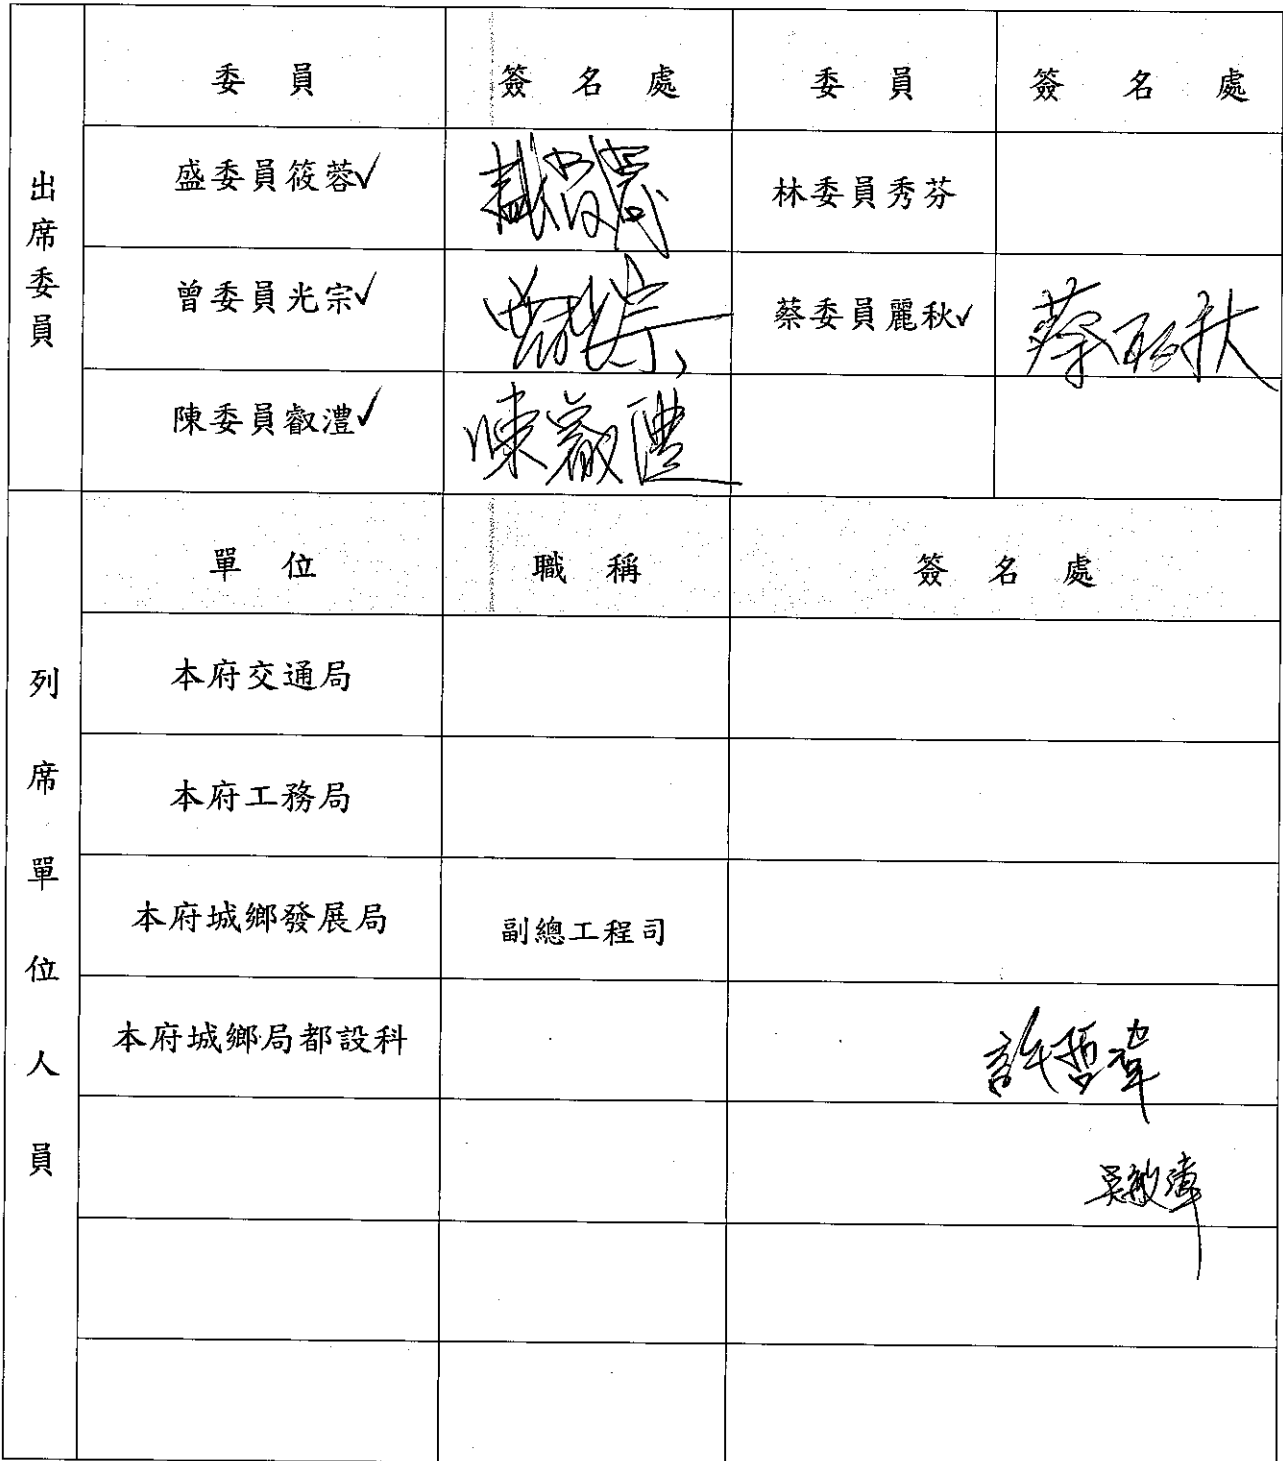 出席委員
委員 簽名處 委員 簽名處
盛委員筱蓉✓ 林委員秀芬
曾委員光宗✓ 曾光宗 蔡委員麗秋✓ 蔡 秋
陳委員叡澧✓ 陳叡澧
列席單位人員
單位 職稱 簽名處
本府交通局
本府工務局
本府城鄉發展局 副總工程司
本府城鄉局都設科 許哲瑋
吳敏瑋